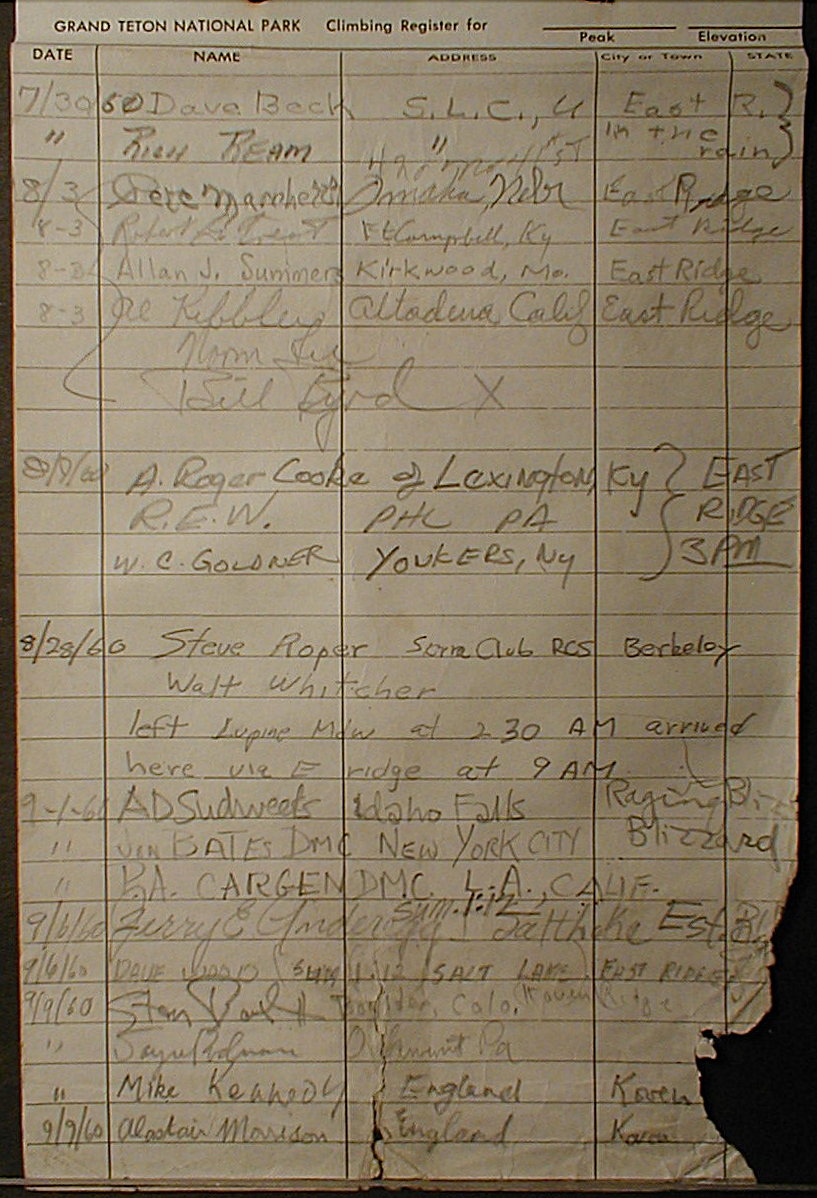 GRAND TETON NATIONAL PARK Climbing Register for
Peak Elevation
DATE NAME ADDRESS City or Town STATE
7/30 60 Dave Beck S.L.C., U East R.
" Rich REAM " in the rain
8/3 Pete Omaha, Nebr East Ridge
8-3 Robert Ft Campbell, Ky East Ridge
8-3 Allan J. Summers Kirkwood, Mo. East Ridge
8-3 Altadena Calif East Ridge
Norm
Bill Byrd X
8/8/60 A. Roger Cooke of Lexington, Ky EAST
R.E.W. PHL PA RIDGE
W. C. GOLDNER YONKERS, NY 3 PM
8/28/60 Steve Roper Sierra Club RCS Berkeley
Walt Whitcher
left Lupine Mdw at 2 30 AM arrived
here via E ridge at 9 AM
9-1-60 AD Sudweets Idaho Falls Raging Bliz
" Jon BATES DMC NEW YORK CITY Blizzard
" K.A. CARGEN DMC. L.A., CALIF.
9/6/60 Jerry E. Anderson sum. 1:12 Salt Lake
9/6/60 DAVE WOOD (SUM 1:12 SALT LAKE) EAST RIDGE
9/9/60 Stan Boulder, Colo. (Koven Ridge
" Pa
" Mike Kennedy England Koven
9/9/60 Alastair Morrison England Koven